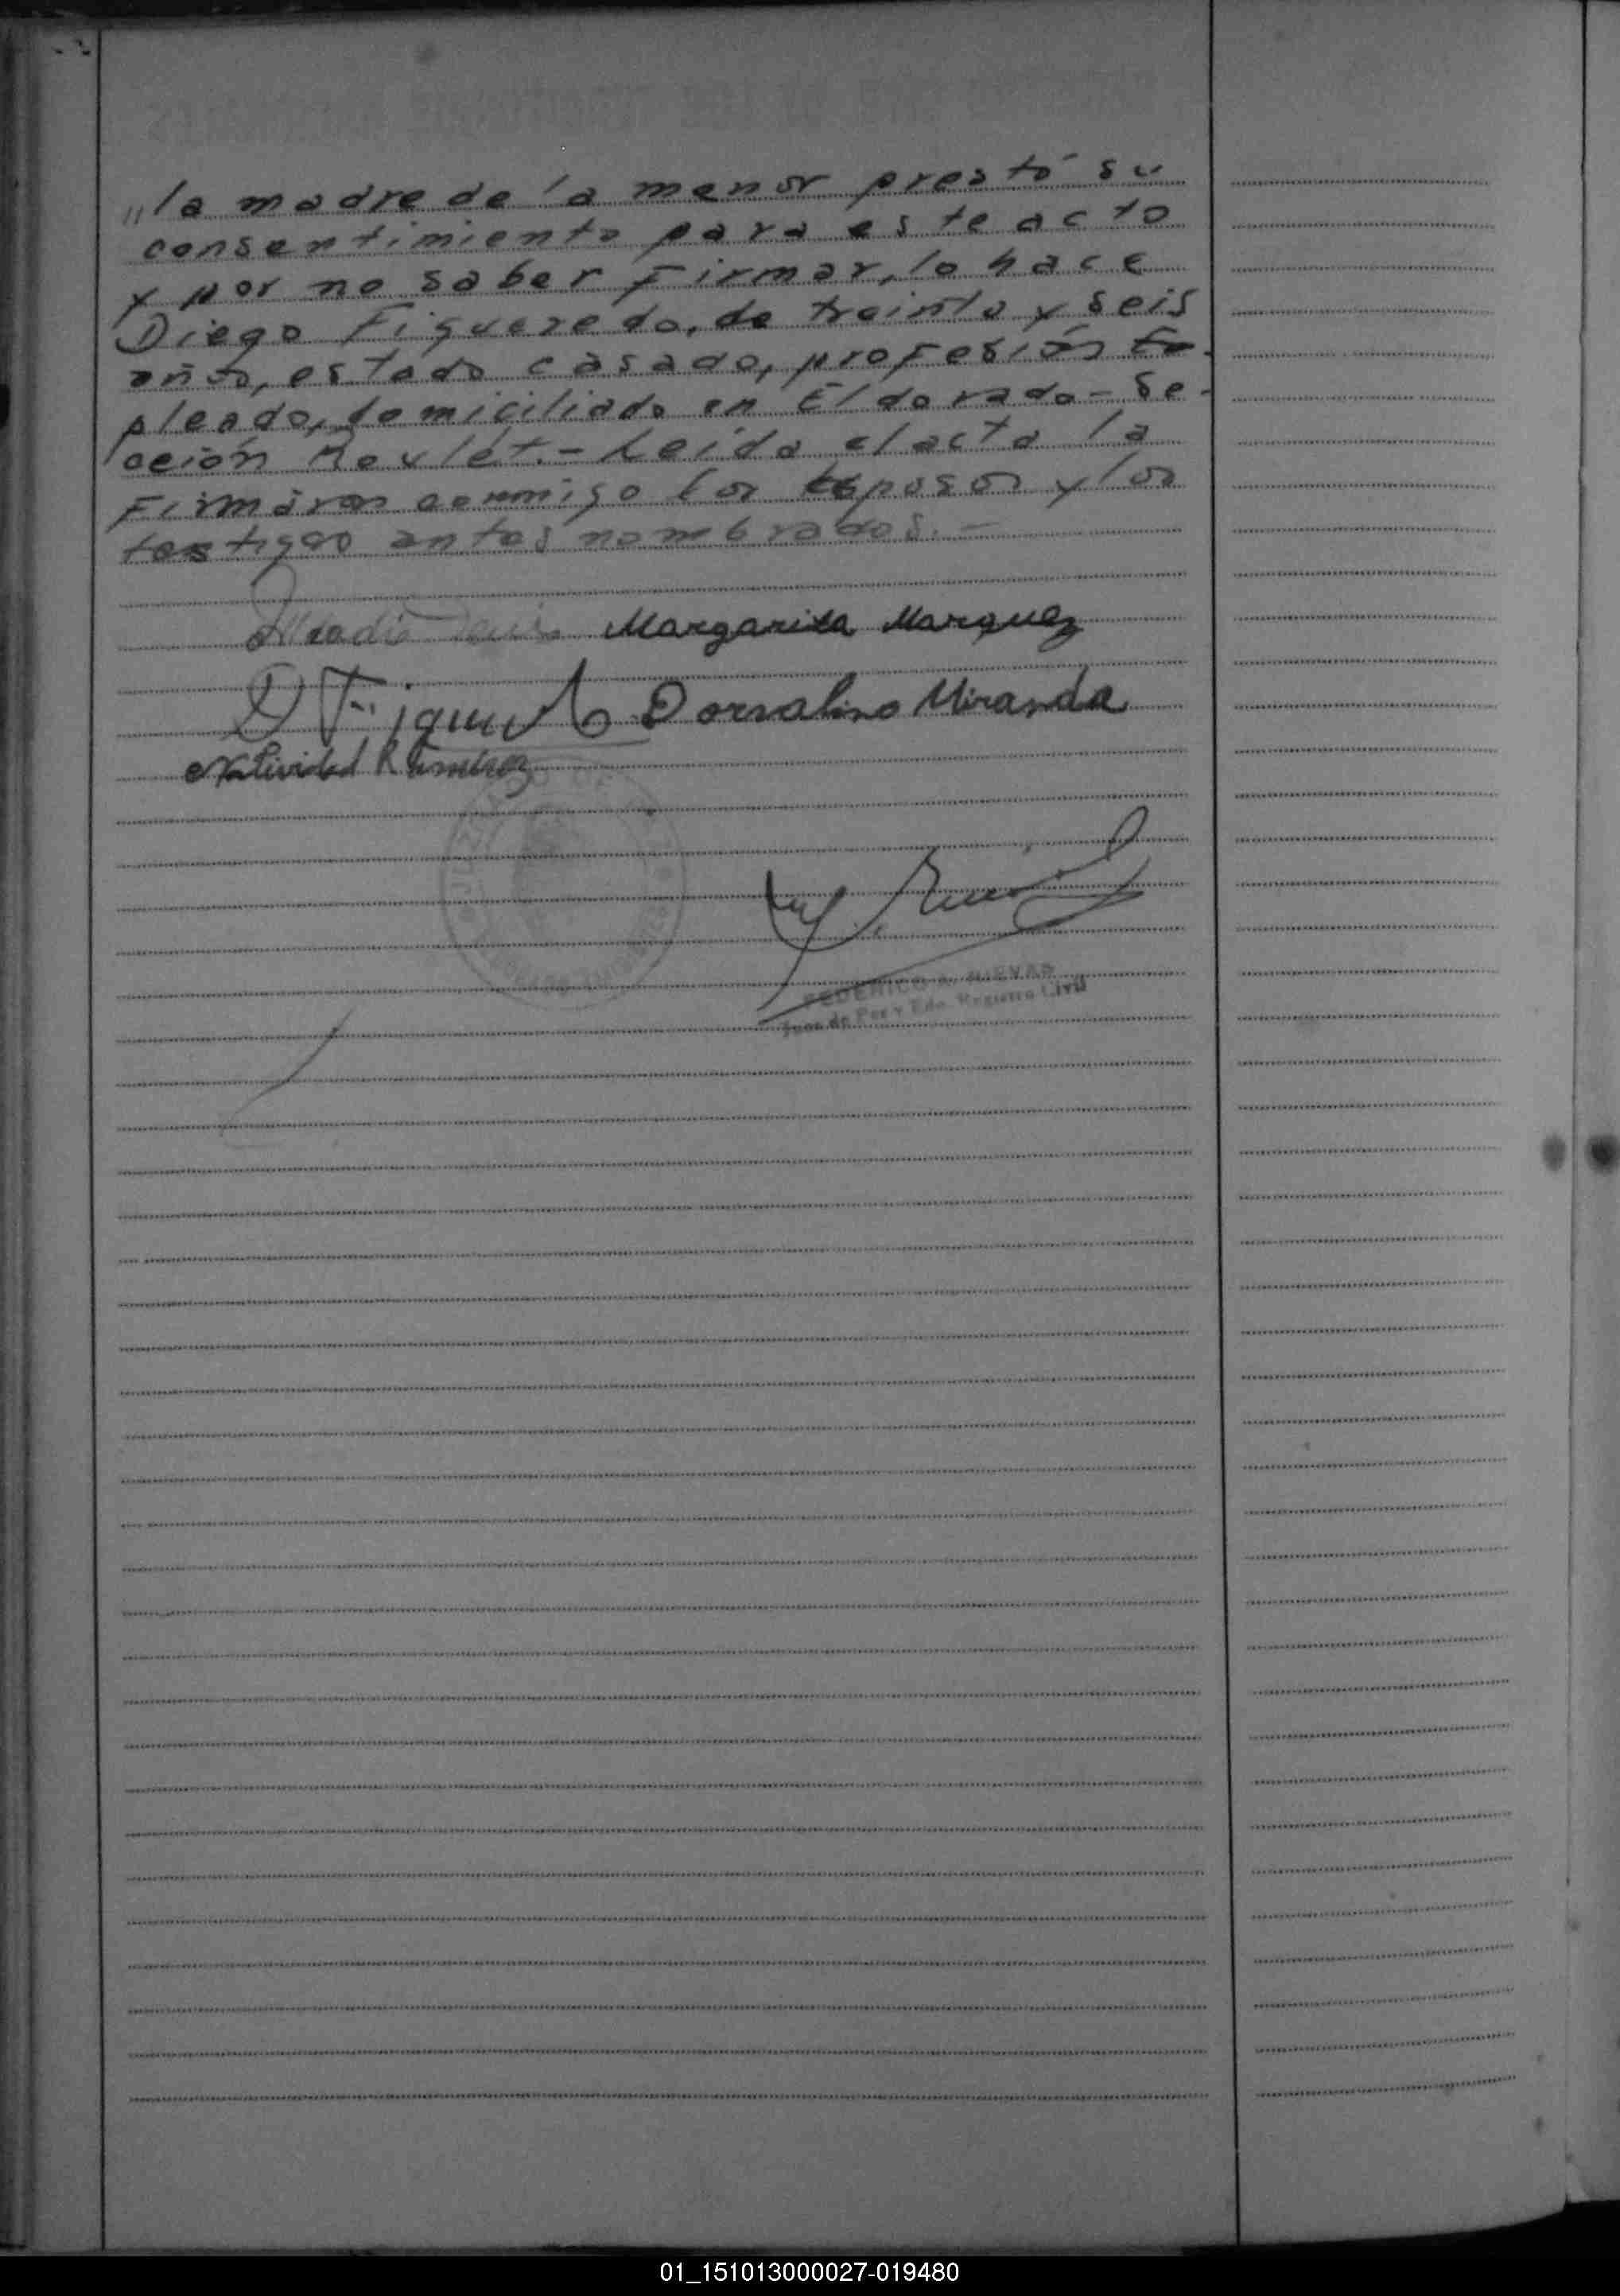 "la madre de la menor prestó su
consentimiento para este acto
y por no saber Firmar, lo hace
Diego Figueredo, de treinta y seis
años, estado casado, profesión Em-
pleado, domiciliado en Eldorado - Se-
cción Roulét.- Leída el acta la
Firmáron conmigo los Esposos y los
testigos antes nombrados.-
Margarita Marquez
D Figueredo Dorvalino Miranda
Natividad Ramirez
FEDERICO A. NIEVAS
Juez de Paz y Edo. Registro Civil
01_151013000027-019480